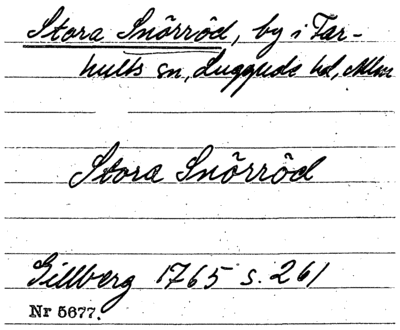 Stora Snörröd, by i Far-
hults sn, Luggude hd, Mlm
Stora Snörröd
Gillberg 1765 s. 261
Nr 5677.